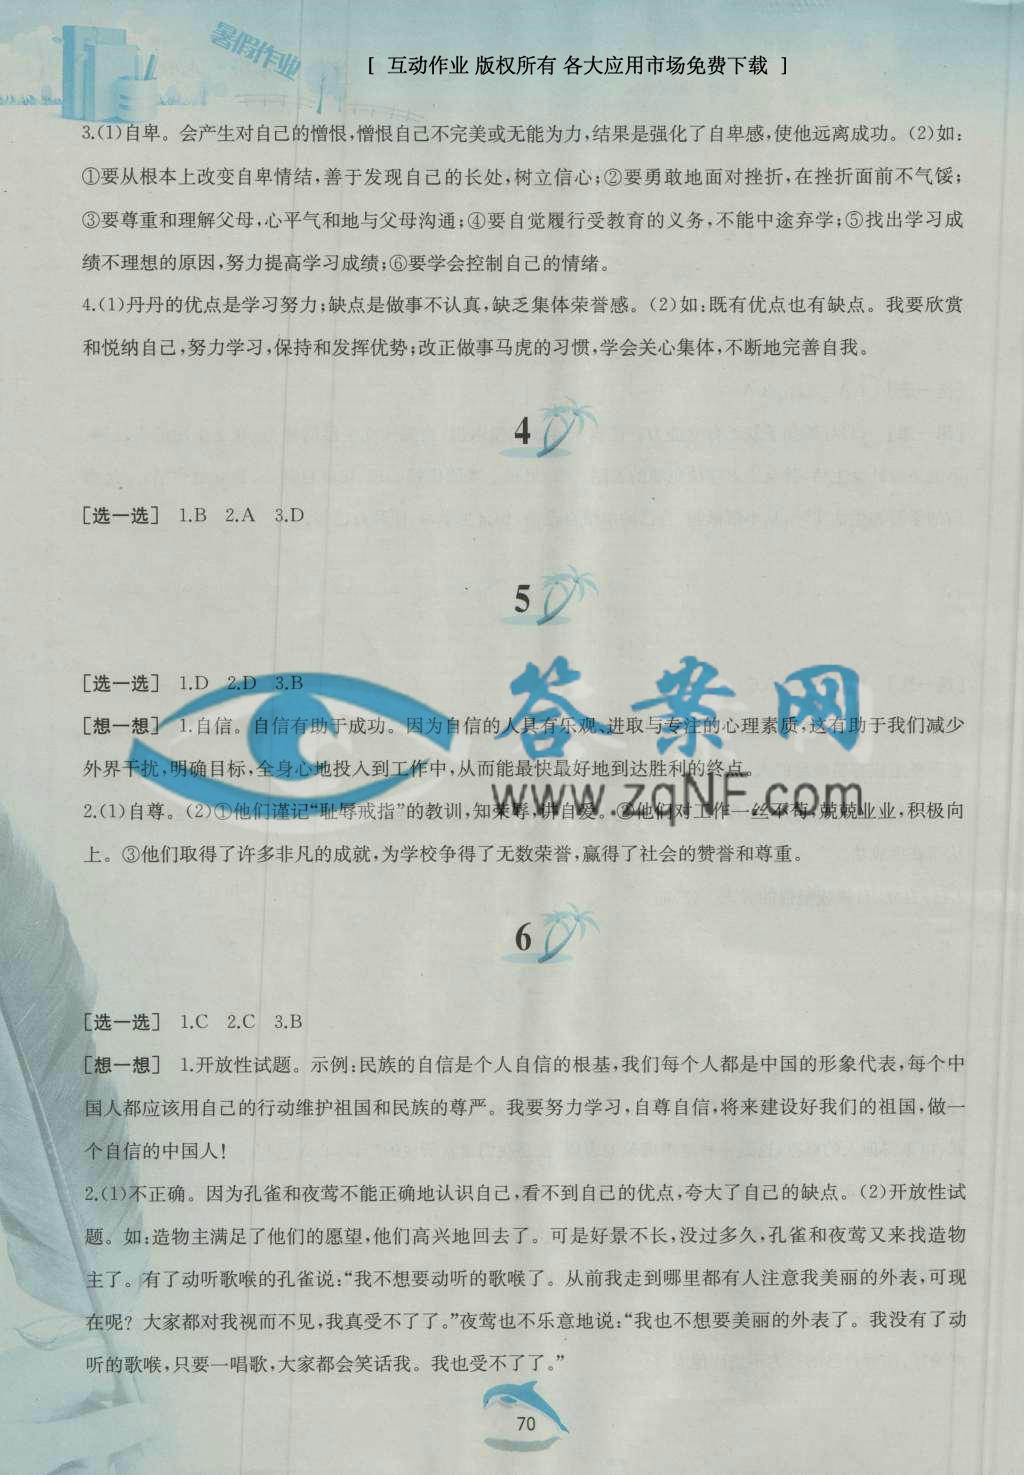 暑假作业
[ 互动作业 版权所有 各大应用市场免费下载 ]
3.(1)自卑。会产生对自己的憎恨,憎恨自己不完美或无能为力,结果是强化了自卑感,使他远离成功。(2)如:
①要从根本上改变自卑情结,善于发现自己的长处,树立信心;②要勇敢地面对挫折,在挫折面前不气馁;
③要尊重和理解父母,心平气和地与父母沟通;④要自觉履行受教育的义务,不能中途弃学;⑤找出学习成
绩不理想的原因,努力提高学习成绩;⑥要学会控制自己的情绪。
4.(1)丹丹的优点是学习努力;缺点是做事不认真,缺乏集体荣誉感。(2)如:既有优点也有缺点。我要欣赏
和悦纳自己,努力学习,保持和发挥优势;改正做事马虎的习惯,学会关心集体,不断地完善自我。
4
[选一选] 1.B 2.A 3.D
5
[选一选] 1.D 2.D 3.B
[想一想] 1.自信。自信有助于成功。因为自信的人具有乐观、进取与专注的心理素质,这有助于我们减少
外界干扰,明确目标,全身心地投入到工作中,从而能最快最好地到达胜利的终点。
2.(1)自尊。(2)①他们谨记“耻辱戒指”的教训,知荣辱,讲自爱。②他们对工作一丝不苟,兢兢业业,积极向
上。③他们取得了许多非凡的成就,为学校争得了无数荣誉,赢得了社会的赞誉和尊重。
答案网
www.zqNF.com
6
[选一选] 1.C 2.C 3.B
[想一想] 1.开放性试题。示例:民族的自信是个人自信的根基,我们每个人都是中国的形象代表,每个中
国人都应该用自己的行动维护祖国和民族的尊严。我要努力学习,自尊自信,将来建设好我们的祖国,做一
个自信的中国人!
2.(1)不正确。因为孔雀和夜莺不能正确地认识自己,看不到自己的优点,夸大了自己的缺点。(2)开放性试
题。如:造物主满足了他们的愿望,他们高兴地回去了。可是好景不长,没过多久,孔雀和夜莺又来找造物
主了。有了动听歌喉的孔雀说:“我不想要动听的歌喉了。从前我走到哪里都有人注意我美丽的外表,可现
在呢? 大家都对我视而不见,我真受不了了。”夜莺也不乐意地说:“我也不想要美丽的外表了。我没有了动
听的歌喉,只要一唱歌,大家都会笑话我。我也受不了了。”
70